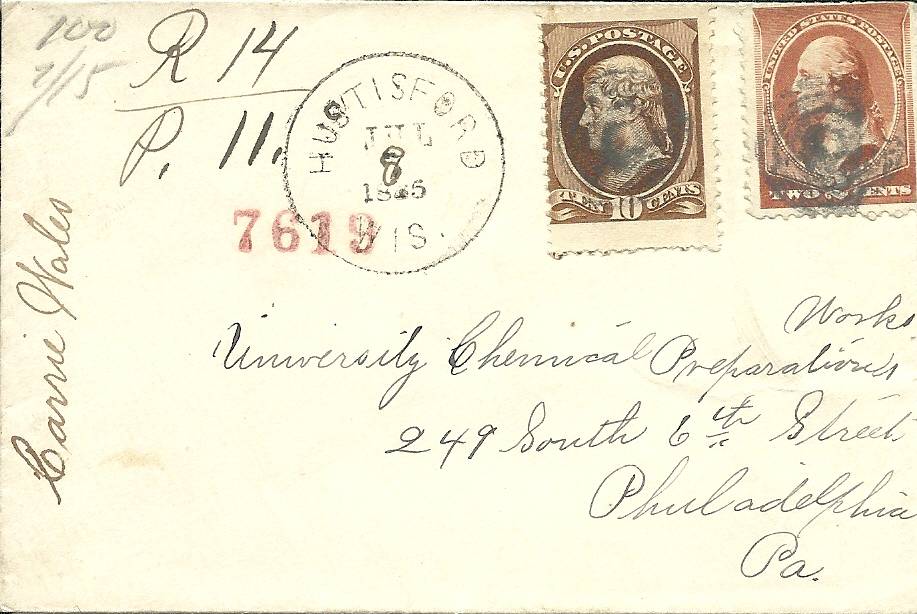 100
7/15
R 14
P. 11.
HUSTISFORD
JUL
8
1885
WIS.
7619
U.S. POSTAGE
TEN 10 CENTS
UNITED STATES POSTAGE
TWO CENTS
Carrie Wales
Works
University Chemical Preparation's
249 South 6th Street
Philadelphia
Pa.